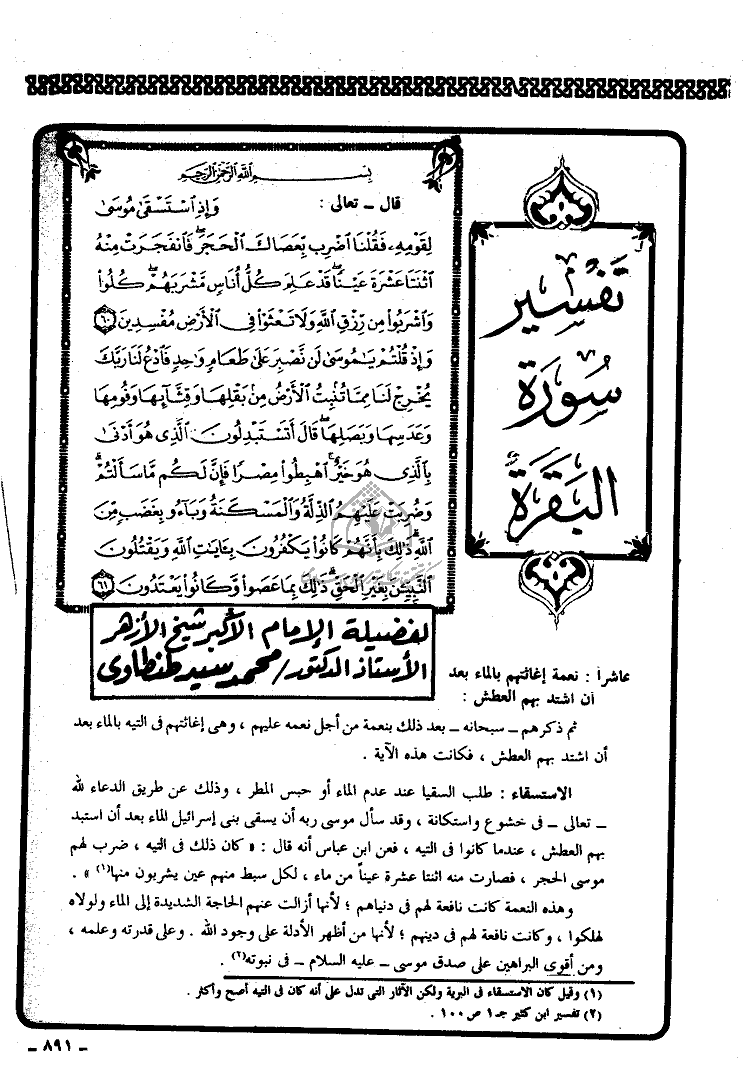 تفسير
سورة
البقرة
بِسْمِ اللَّهِ الرَّحْمَٰنِ الرَّحِيمِ
قال ــ تعالى : وَإِذِ ٱسْتَسْقَىٰ مُوسَىٰ
لِقَوْمِهِۦ فَقُلْنَا ٱضْرِب بِّعَصَاكَ ٱلْحَجَرَ ۖ فَٱنفَجَرَتْ مِنْهُ
ٱثْنَتَا عَشْرَةَ عَيْنًا ۖ قَدْ عَلِمَ كُلُّ أُنَاسٍ مَّشْرَبَهُمْ ۖ كُلُوا۟
وَٱشْرَبُوا۟ مِن رِّزْقِ ٱللَّهِ وَلَا تَعْثَوْا۟ فِى ٱلْأَرْضِ مُفْسِدِينَ ٦٠
وَإِذْ قُلْتُمْ يَـٰمُوسَىٰ لَن نَّصْبِرَ عَلَىٰ طَعَامٍ وَٰحِدٍ فَٱدْعُ لَنَا رَبَّكَ
يُخْرِجْ لَنَا مِمَّا تُنۢبِتُ ٱلْأَرْضُ مِنۢ بَقْلِهَا وَقِثَّآئِهَا وَفُومِهَا
وَعَدَسِهَا وَبَصَلِهَا ۖ قَالَ أَتَسْتَبْدِلُونَ ٱلَّذِى هُوَ أَدْنَىٰ
بِٱلَّذِى هُوَ خَيْرٌ ۚ ٱهْبِطُوا۟ مِصْرًا فَإِنَّ لَكُم مَّا سَأَلْتُمْ ۗ
وَضُرِبَتْ عَلَيْهِمُ ٱلذِّلَّةُ وَٱلْمَسْكَنَةُ وَبَآءُو بِغَضَبٍ مِّنَ
ٱللَّهِ ۗ ذَٰلِكَ بِأَنَّهُمْ كَانُوا۟ يَكْفُرُونَ بِـَٔايَـٰتِ ٱللَّهِ وَيَقْتُلُونَ
ٱلنَّبِيِّـۧنَ بِغَيْرِ ٱلْحَقِّ ۗ ذَٰلِكَ بِمَا عَصَوا۟ وَّكَانُوا۟ يَعْتَدُونَ ٦١
لفضيلة الإمام الأكبر شيخ الأزهر
الأستاذ الدكتور/ محمد سيد طنطاوى
عاشراً : نعمة إغاثتهم بالماء بعد
أن اشتد بهم العطش :
ثم ذكرهم ــ سبحانه ــ بعد ذلك بنعمة من أجل نعمه عليهم ، وهى إغاثتهم فى التيه بالماء بعد
أن اشتد بهم العطش ، فكانت هذه الآية .
الاستسقاء : طلب السقيا عند عدم الماء أو حبس المطر ، وذلك عن طريق الدعاء لله
ــ تعالى ــ فى خشوع واستكانة ، وقد سأل موسى ربه أن يسقى بنى إسرائيل الماء بعد أن استبد
بهم العطش ، عندما كانوا فى التيه ، فعن ابن عباس أنه قال : « كان ذلك فى التيه ، ضرب لهم
موسى الحجر ، فصارت منه اثنتا عشرة عيناً من ماء ، لكل سبط منهم عين يشربون منها(١) » .
وهذه النعمة كانت نافعة لهم فى دنياهم ؛ لأنها أزالت عنهم الحاجة الشديدة إلى الماء ولولاه
لهلكوا ، وكانت نافعة لهم فى دينهم ؛ لأنها من أظهر الأدلة على وجود الله . وعلى قدرته وعلمه ،
ومن أقوى البراهين على صدق موسى ــ عليه السلام ــ فى نبوته(٢) .
(١) وقيل كان الاستسقاء فى البرية ولكن الآثار التى تدل على أنه كان فى التيه أصح وأكثر .
(٢) تفسير ابن كثير جـ ١ ص ١٠٠ .
ــ ٨٩١ ــ